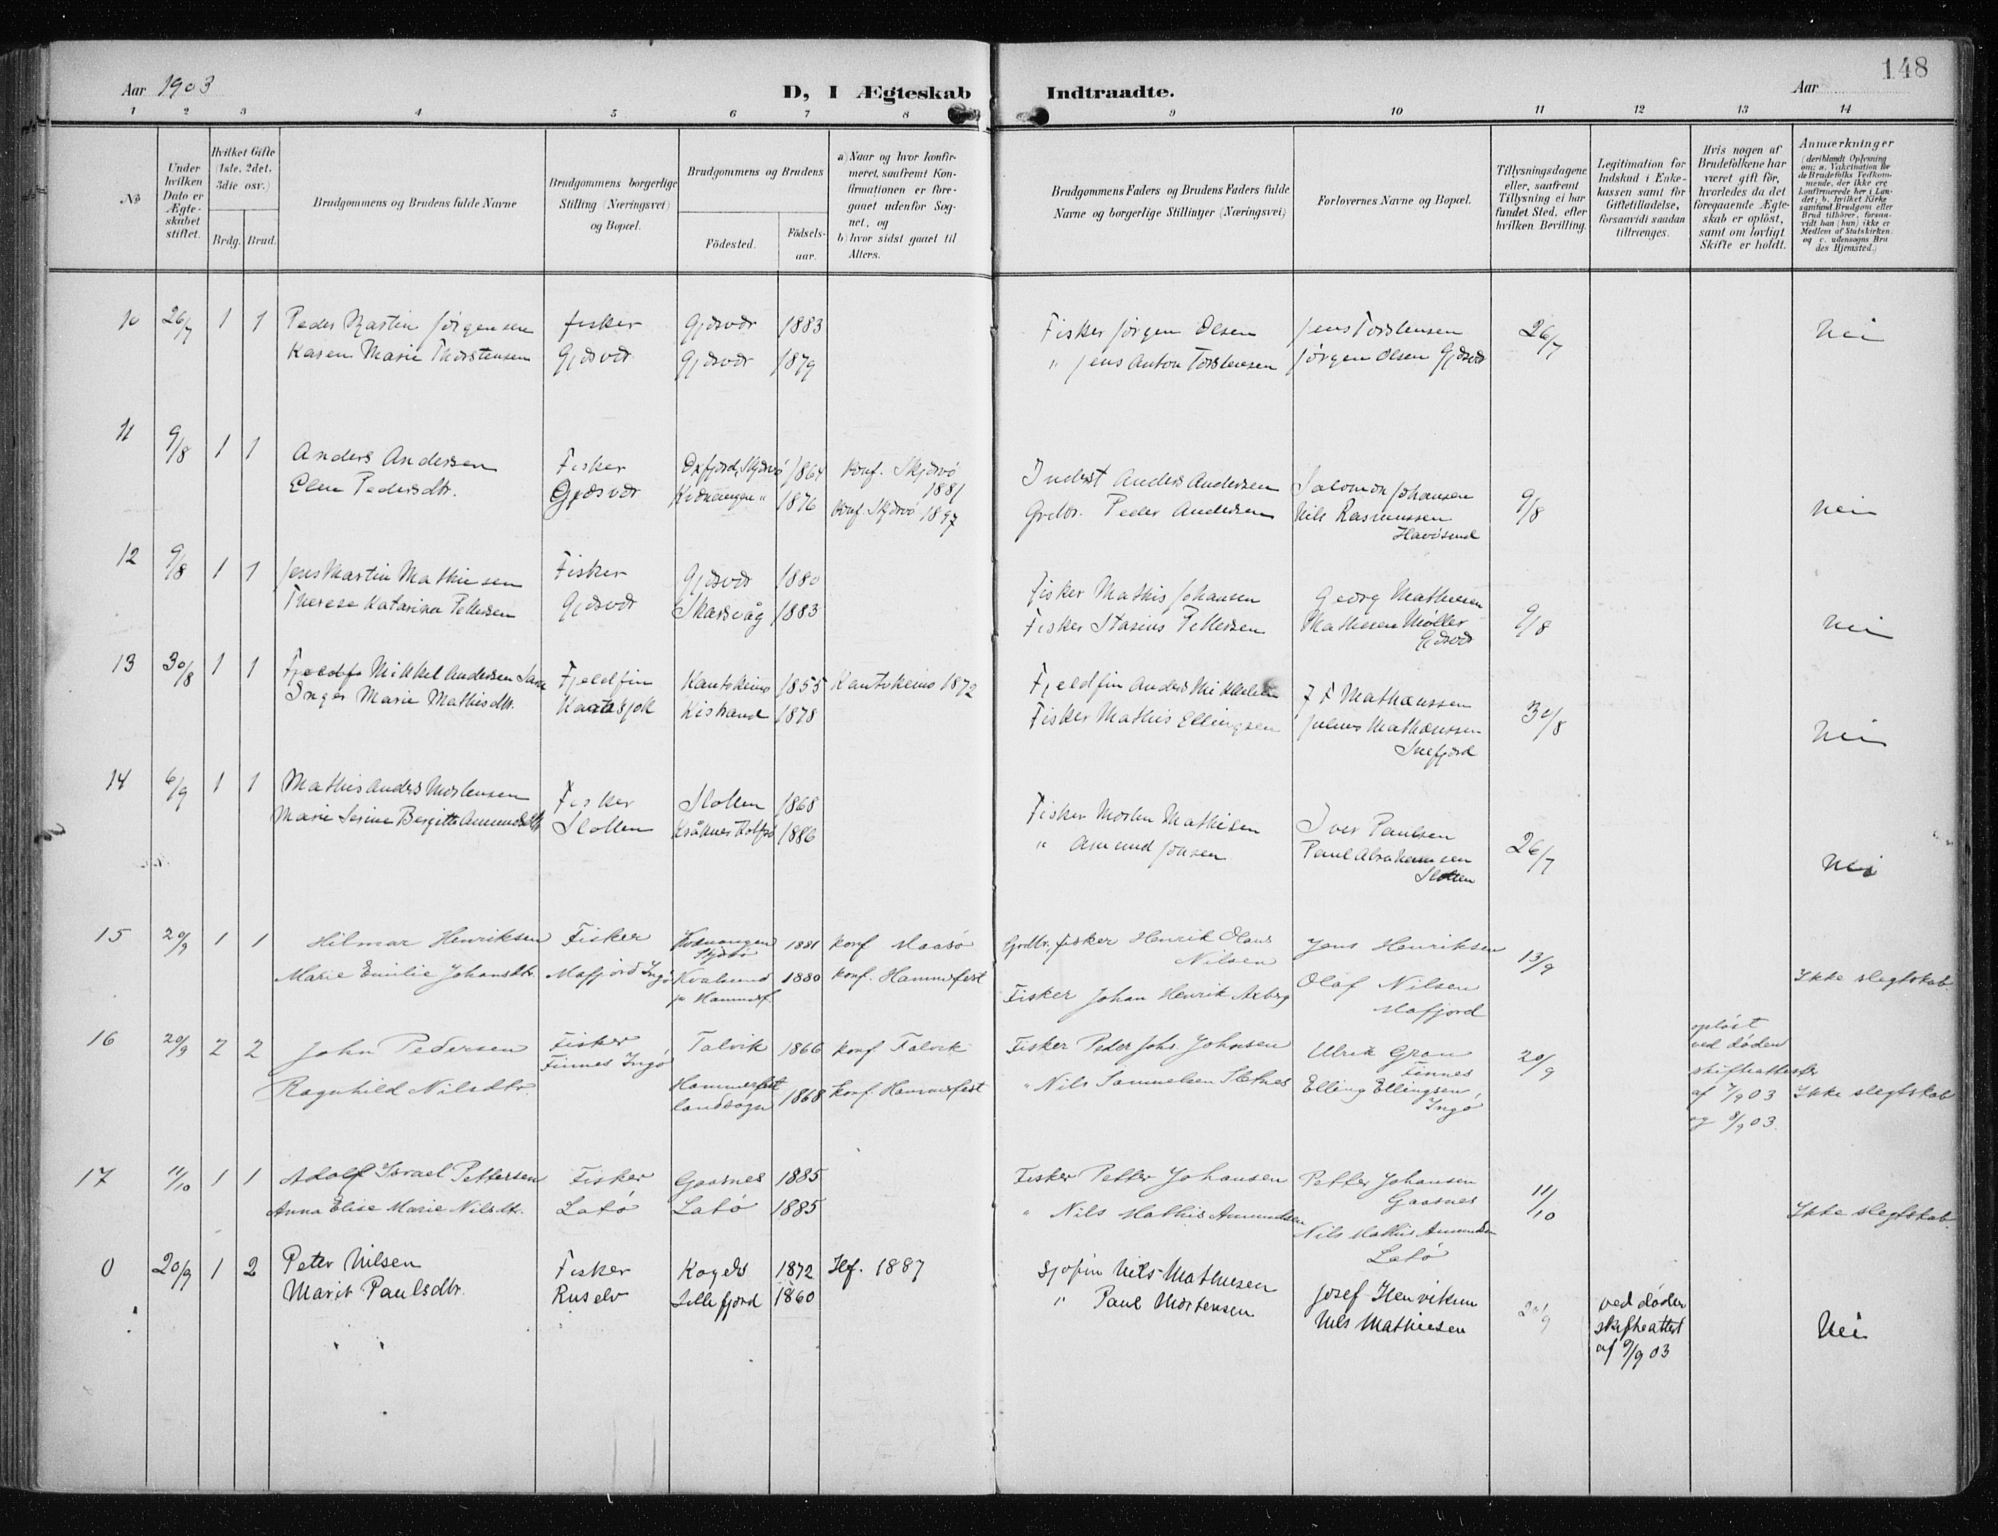 148
Aar 1903
D, I Ægteskab Indtraadte.
Aar
1 2 3 4 5 6 7 8 9 10 11 12 13 14
№
Under hvilken Dato er Ægteskabet stiftet.
Hvilket Gifte (1ste, 2det, 3die osv.)
Brdg. Brud.
Brudgommens og Brudens fulde Navne
Brudgommens borgerlige Stilling (Næringsvei) og Bopæl.
Brudgommens og Brudens
Fødested.
Fødselsaar.
a) Naar og hvor konfirmeret, saafremt Konfirmationen er foregaaet udenfor Sognet, og
b) hvor sidst gaaet til Alters.
Brudgommens Faders og Brudens Faders fulde Navne og borgerlige Stillinger (Næringsvei)
Forlovernes Navne og Bopæl.
Tillysningsdagene eller, saafremt Tillysning ei har fundet Sted, efter hvilken Bevilling.
Legitimation for Indskud i Enkekassen samt for Giftetilladelse, forsaavidt saadan tiltrænges.
Hvis nogen af Brudefolkene har været gift før, hvorledes da det foregaaende Ægteskab er opløst, samt om lovligt Skifte er holdt.
Anmærkninger
(deriblandt Oplysning om: a. Vakcination for de Brudefolks Vedkommende, der ikke ere konfirmerede her i Landet; b. hvilket Kirkesamfund Brudgom eller Brud tilhører, forsaavidt han (hun) ikke er Medlem af Statskirken, og c. udensogns Brudes Hjemsted.)
10 26/7 1 1 Peder Martin Jørgensen fisker Gjesvær 1883 Fisker Jørgen Olsen Jens Torstensen 26/7 Nei
Karen Marie Thorstensen Gjesvær Gjesvær 1879 " Jens Anton Torstensen Jørgen Olsen Gjesvær
11 9/8 1 1 Anders Andersen Fisker Oxfjord, Skjervø 1864 Konf. Skjervø 1881 Inderst Anders Andersen Salomon Johansen
Elen Pedersdtr. Gjesvær Kvænangen " 1876 Konf. Skjervø 1897 Grdbr. Peder Andersen Nils Rasmussen Havøsund 9/8 Nei
12 9/8 1 1 Jens Martin Mathiesen Fisker Gjesvær 1880 Fisker Mathis Johansen Georg Mathiesen
Therese Katarina Pettersen Gjesvær Skarsvåg 1883 Fisker Stasius Pettersen Mathiesen Møller Gjesvær 9/8 Nei
13 30/8 1 1 Fjeldf. Mikkel Andersen Sara Fjeldfin Kautokeino 1855 Kautokeino 1872 Fjeldfin Anders Mikkelsen J F Mathæussen
Inger Marie Mathisdtr. Karasjok Kistrand 1878 Fisker Mathis Ellingsen Julius Mathæussen Snefjord 30/8 Nei
14 6/9 1 1 Mathis Anders Mortensen Fisker Slotten 1868 Fisker Morten Mathisen Iver Paulsen
Marie Serine Bergitte Amundsdtr Slotten Kråknes Rolfsø 1886 " Amund Jonsen Paul Abrahamsen Slotten 26/7 Nei
15 20/9 1 1 Hilmar Henriksen Fisker Kvænangen Skjervø 1881 Konf Maasø Grdbr. fisker Henrik Olaus Nilsen Jens Henriksen 13/9
Marie Emilie Johansdtr. Mafjord Ingø Kvalsund p. Hammerf. 1880 Konf. Hammerfest Fisker Johan Henrik Axberg Olaf Nilsen Mafjord Ikke slegtskab.
16 20/9 2 2 John Pedersen Fisker Finnes Ingø Talvik 1866 Konf Talvik Fisker Peder Johs. Johnsen Ulrik Gran Finnes 20/9 opløst ved døden
Ragnhild Nilsdtr. Hammerfest landsogn 1868 Konf. Hammerfest " Nils Samuelsen Elling Ellingsen, Ingø skifteattester af 7/9 03 og 8/9 03. Ikke slegtskab
17 11/10 1 1 Adolf Israel Pettersen Fisker Gaasnes 1885 Fisker Petter Johansen Petter Johansen Gaasnes 11/10
Anna Elise Marie Nilsdtr. Latø Latø 1885 " Nils Mathis Amundsen Nils Mathis Amundsen Latø Ikke slegtskab.
0 20/9 1 2 Peter Nilsen Fisker 1872 Hf. 1887 Sjøfin Nils Mathiesen Josef Henriksen
Marit Paulsdtr. Ruselv Lillefjord 1860 " Paul Mortensen Nils Mathiesen 20/9 ved døden skifteattest af 9/9 03 Nei